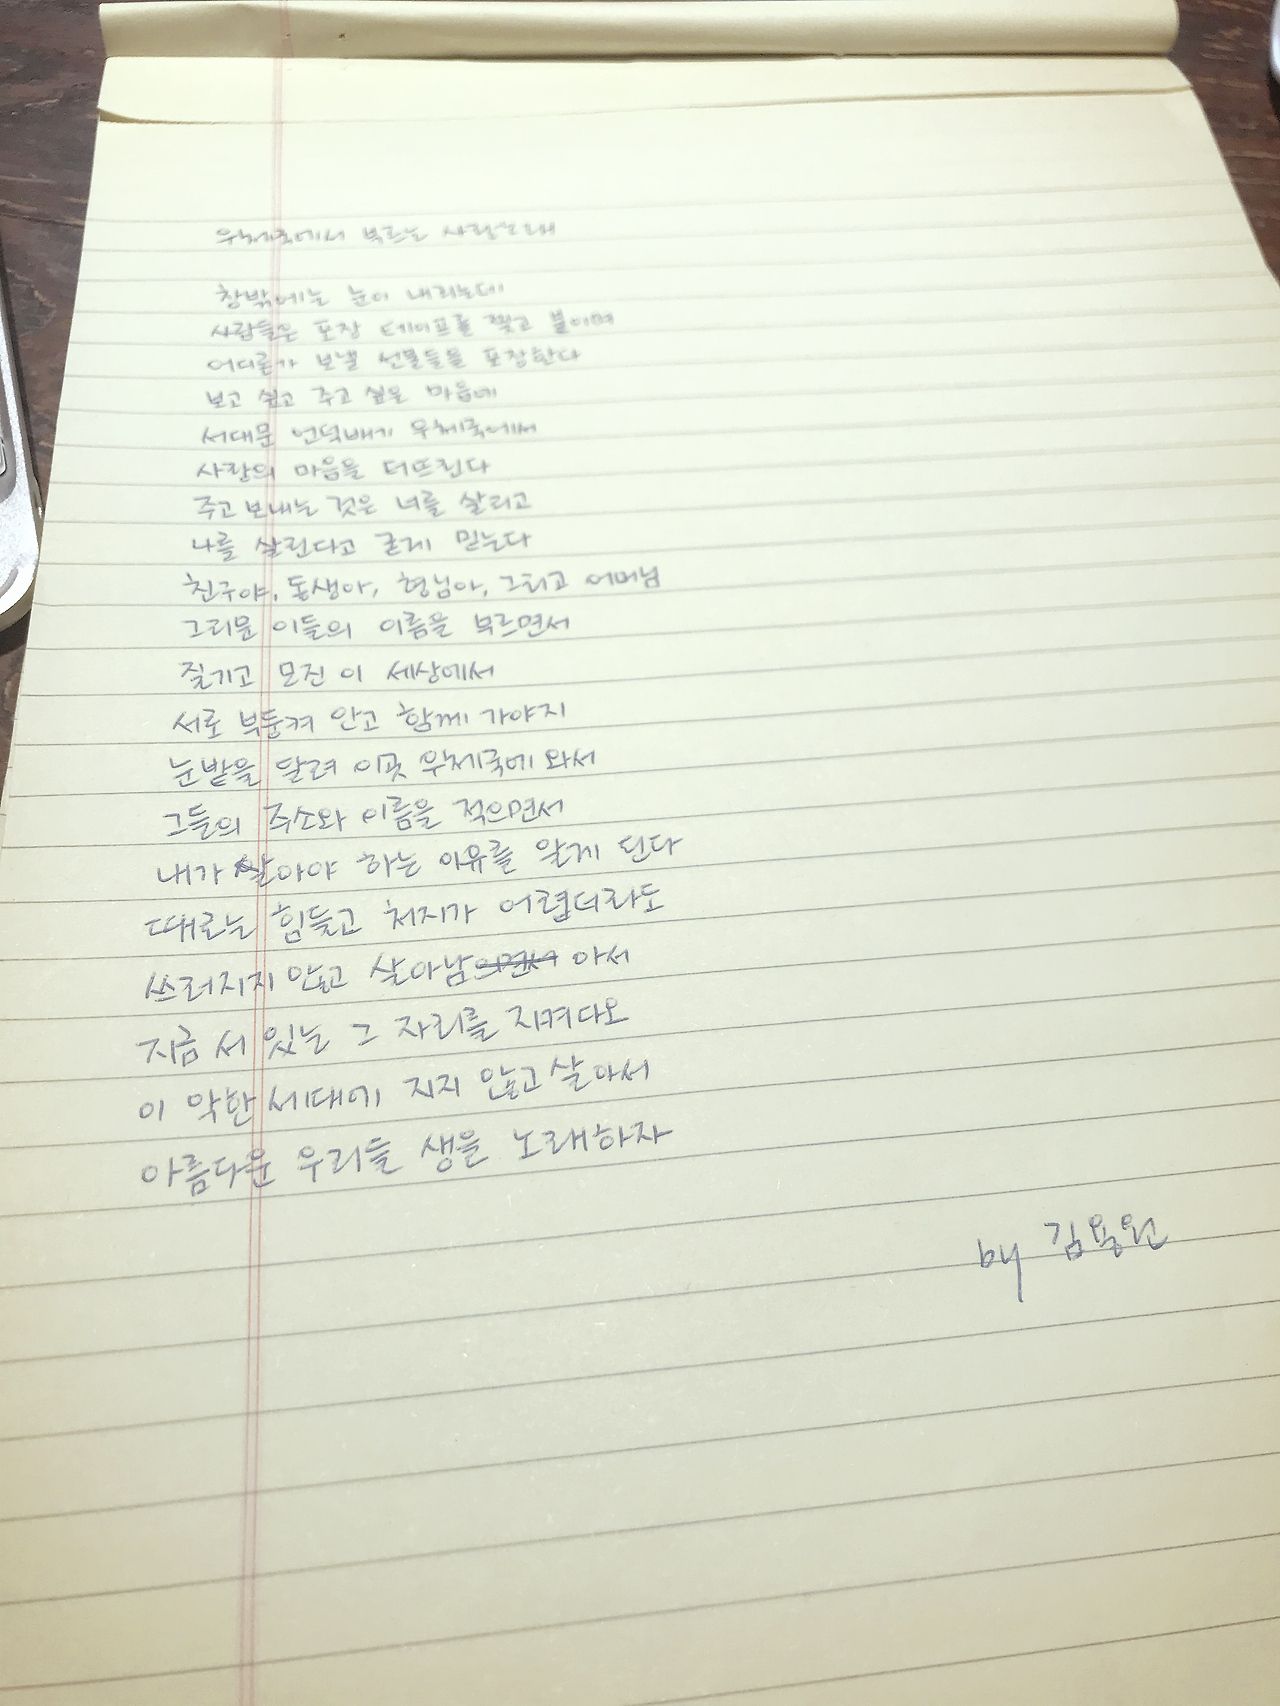 우체국에서 부르는 사랑노래
창밖에는 눈이 내리는데
사람들은 포장 테이프를 찢고 붙이며
어디론가 보낼 선물들을 포장한다
보고 싶고 주고 싶은 마음에
서대문 언덕배기 우체국에서
사랑의 마음을 터뜨린다
주고 보내는 것은 너를 살리고
나를 살린다고 굳게 믿는다
친구야, 동생아, 형님아, 그리고 어머님
그리운 이들의 이름을 부르면서
질기고 모진 이 세상에서
서로 부둥켜 안고 함께 가야지
눈밭을 달려 이곳 우체국에 와서
그들의 주소와 이름을 적으면서
내가 살아야 하는 이유를 알게 된다
때로는 힘들고 처지가 어렵더라도
쓰러지지 않고 살아남아서
지금 서 있는 그 자리를 지켜다오
이 악한 세대에 지지 않고 살아서
아름다운 우리들 생을 노래하자
by 김용원